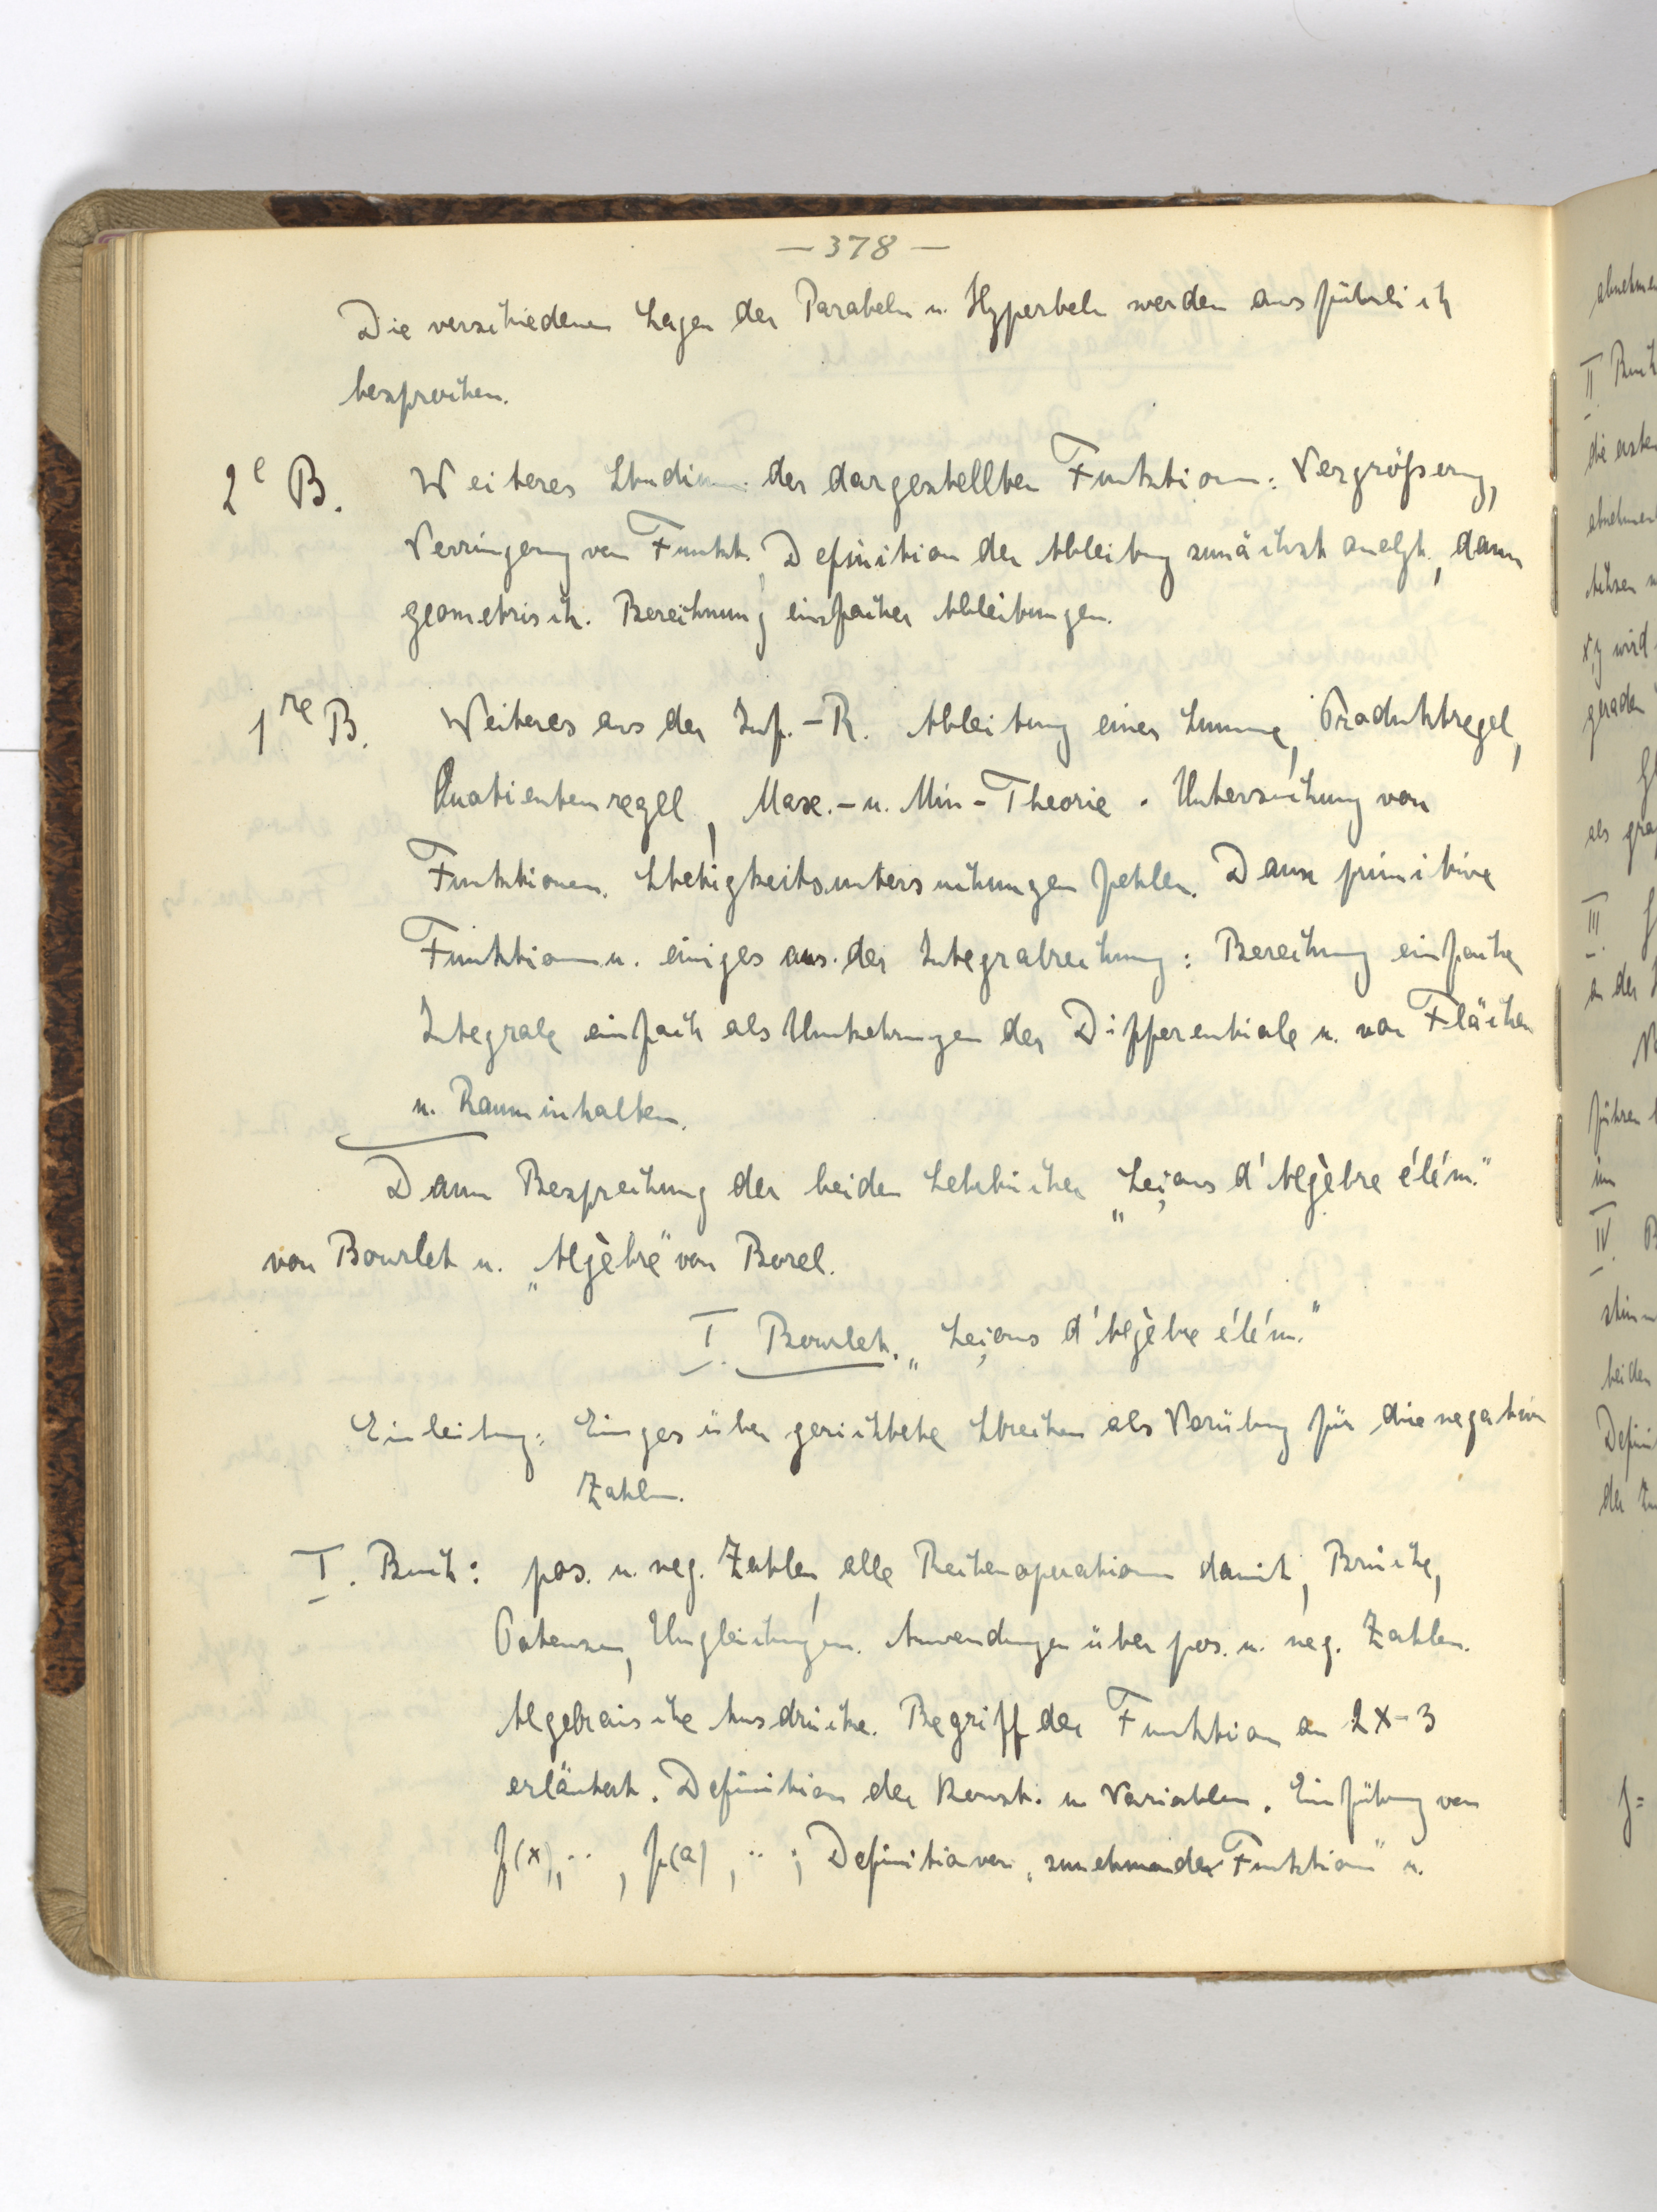 — 378 —
Die verschiedenen Lagen der Parabeln u. Hyperbeln werden ausführlich
besprochen.
2e B. Weiteres Studium der dargestellten Funktionen: Vergrößerung,
Verringerung von Funkt., Definition der Ableitung zunächst analyt., dann
geometrisch. Berechnung einfacher Ableitungen.
1re B. Weiteres aus der Inf.-R. Ableitung einer Summe, Produktregel,
Quotientenregel, Max.- u. Min-Theorie. Untersuchung von
Funktionen. Stetigkeitsuntersuchungen fehlen. Dann primitive
Funktionen u. einiges aus der Integralrechnung: Berechnung einfacher
Integrale einfach als Umkehrungen der Differentiale u. von Flächen
u. Rauminhalten.
Dann Besprechung der beiden Lehrbücher „Leçons d'Algèbre élém."
von Bourlet u. „Algèbre" von Borel.
I. Bourlet. „Leçons d'Algèbre élém."
Einleitung: Einiges über gerichtete Strecken als Vorübung für die negativen
Zahlen.
I. Buch: pos. u. neg. Zahlen, alle Rechenoperationen damit, Brüche,
Potenzen, Ungleichungen. Anwendungen über pos. u. neg. Zahlen.
Algebraische Ausdrücke. Begriff der Funktion an 2x-3
erläutert. Definition der Konst. u. Variablen. Einführung von
f(x), .. , f(a), .. ; Definition von „zunehmender Funktion" u.
abnehmen
II Buch
die ersten
x, y wird
geraden
als gra
III.
an der
führen
im
IV. B
beiden
Defini
der